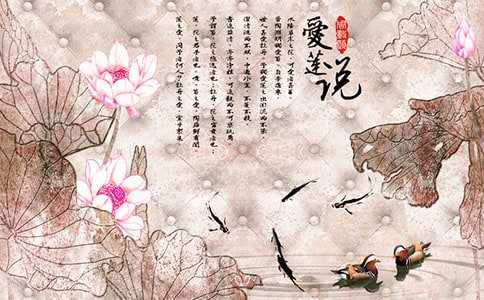 周敦頤
愛蓮说
水陸草木之花，可愛者甚蕃。
晉陶淵明獨愛菊。自李唐來，
世人甚愛牡丹。予獨愛蓮之出淤泥而不染，
濯清漣而不妖，中通外直，不蔓不枝，
香遠益清，亭亭淨植，可遠觀而不可褻玩焉
予謂菊，花之隱逸者也；牡丹，花之富貴者也；
蓮，花之君子者也。噫，菊之愛，陶後鮮有聞
蓮之愛，同予者何人？牡丹之愛，宜乎眾矣